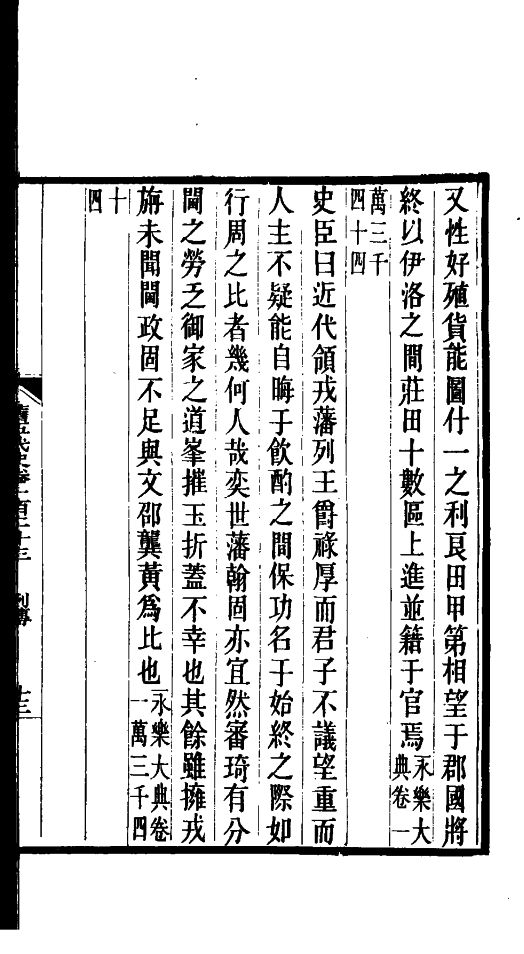 又性好殖貨能圖什一之利良田甲第相望于郡國將
終以伊洛之間莊田十數區上進並籍于官焉永樂大典卷一
萬三千四十四
史臣曰近代領戎藩列王爵祿厚而君子不議望重而
人主不疑能自晦于飲酌之間保功名于始終之際如
行周之比者幾何人哉奕世藩翰固亦宜然審琦有分
閫之勞乏御家之道峯摧玉折蓋不幸也其餘雖擁戎
旃未聞閫政固不足與文邵龔黃爲比也永樂大典卷一萬三千四
十四
舊五代史卷一百二十三 列傳 十三